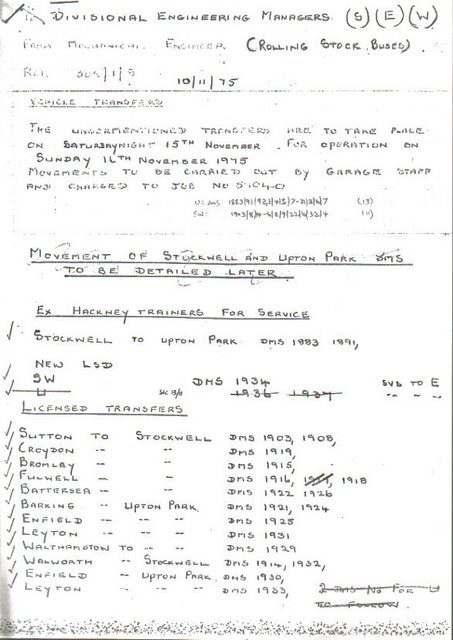 To Divisional Engineering Managers. (S)(E)(W)
From Mechanical Engineer (Rolling Stock, Buses)
Ref. /1/8 10/11/75
Vehicle Transfers
The undermentioned transfers are to take place
on Saturday night 15th November. For operation on
Sunday 16th November 1975
Movements to be carried out by Garage Staff
and charged to Job No
(13)
SW:
Movement of Stockwell and Upton Park DMS
to be detailed later
Ex Hackney Trainers for Service
Stockwell to Upton Park DMS 1883 1891,
New LSD
SW DMS 1934 SVS to E
U 1936 1937 " " "
Licensed Transfers
Sutton to Stockwell DMS 1903, 1908,
Croydon -- -- DMS 1919,
Bromley -- -- DMS 1915,
Fulwell -- -- DMS 1916, 1918
Battersea -- -- DMS 1922 1926
Barking -- Upton Park. DMS 1921, 1924
Enfield -- -- -- DMS 1925
Leyton -- -- -- DMS 1931
Walthamstow to -- -- DMS 1929
Walworth -- Stockwell DMS 1914, 1932,
Enfield -- Upton Park. DMS 1930,
Leyton -- -- DMS 1933, 2 DMS No For U
to follow.